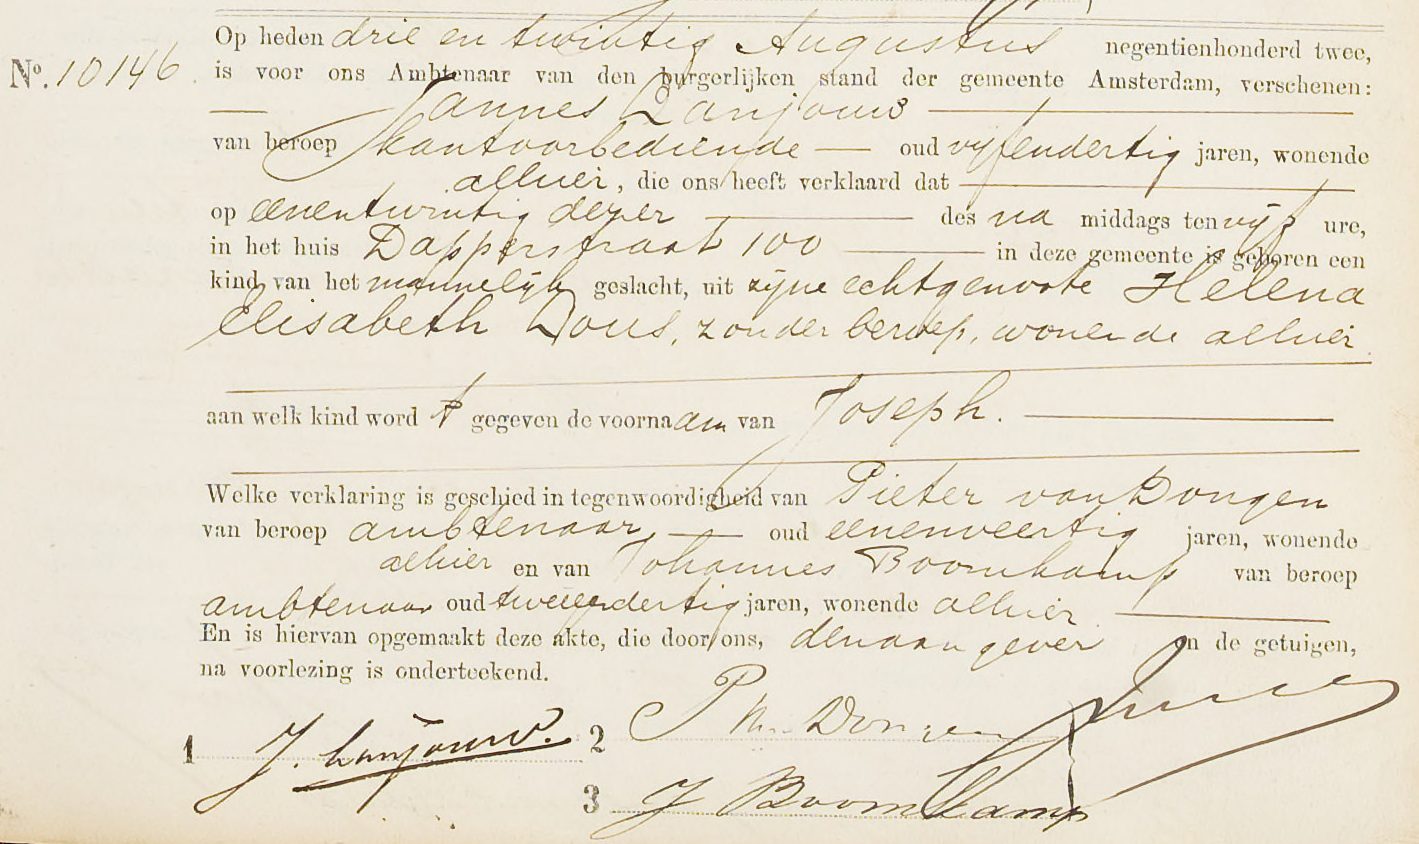 Op heden drie en twintig Augustus negentienhonderd twee,
No. 10146 is voor ons Ambtenaar van den burgerlijken stand der gemeente Amsterdam, verschenen:
Jannes Lanjouw
van beroep kantoorbediende oud vijfendertig jaren, wonende
alhier, die ons heeft verklaard dat
op eenentwintig dezer des na middags ten vijf ure,
in het huis Dapperstraat 100 in deze gemeente is geboren een
kind van het mannelijk geslacht, uit zijne echtgenoote Helena
Elisabeth Dous, zonder beroep, wonende alhier
aan welk kind word t gegeven de voornaam van Joseph.
Welke verklaring is geschied in tegenwoordigheid van Pieter van Dongen
van beroep ambtenaar, oud eenenveertig jaren, wonende
alhier en van Johannes Boomkamp van beroep
ambtenaar oud tweeendertig jaren, wonende alhier
En is hiervan opgemaakt deze akte, die door ons, den aangever en de getuigen,
na voorlezing is onderteekend.
1 J. Lanjouw. 2 P van Dongen
3 J Boomkamp